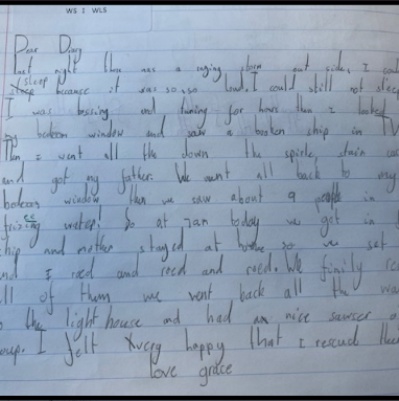 WS: WLS
Dear Diary
Last night there was a raging storm out side, I coul
sleep because it was so, so loud. I could still not sleep
I was tossing and turning for hours then I looked
my bedroom window and saw a broken ship in
Then I went all the down the spirle stair cas
and got my father. We went all back to my
bedroom window then we saw about 9 people in
frizeeing water! So at 7am today we got in
ship and mother stayed at home so we set
nd I roed and roed and roed. We finily re
ll of them we went back all the wa
o the light house and had an nice sawser o
oup. I felt very happy that I rescud the
love grace